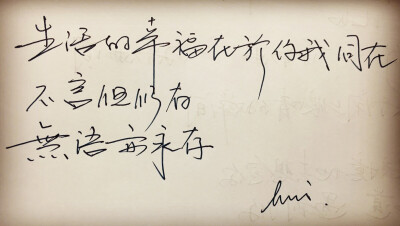 生活的幸福在於你我同在
不言但仍在
無語亦永存
hui.